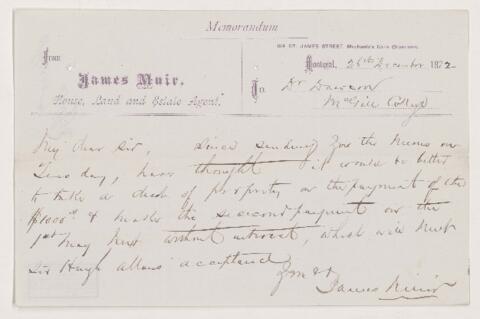 Memorandum
ST. JAMES STREET, Mechanic's Bank Chambers,
From
Montreal, 26th December 1872
James Muir,
To Dr Dawson
House, Land and Estate Agent.
McGill College
My dear Sir, since sending you the memo on
Tuesday, have thought it would be better
to take a deed of property on the payment of the
$1000.00 & make the second payment on the
1st May next without interest, which will meet
Sir Hugh Allans acceptance
Yours &c
James Muir